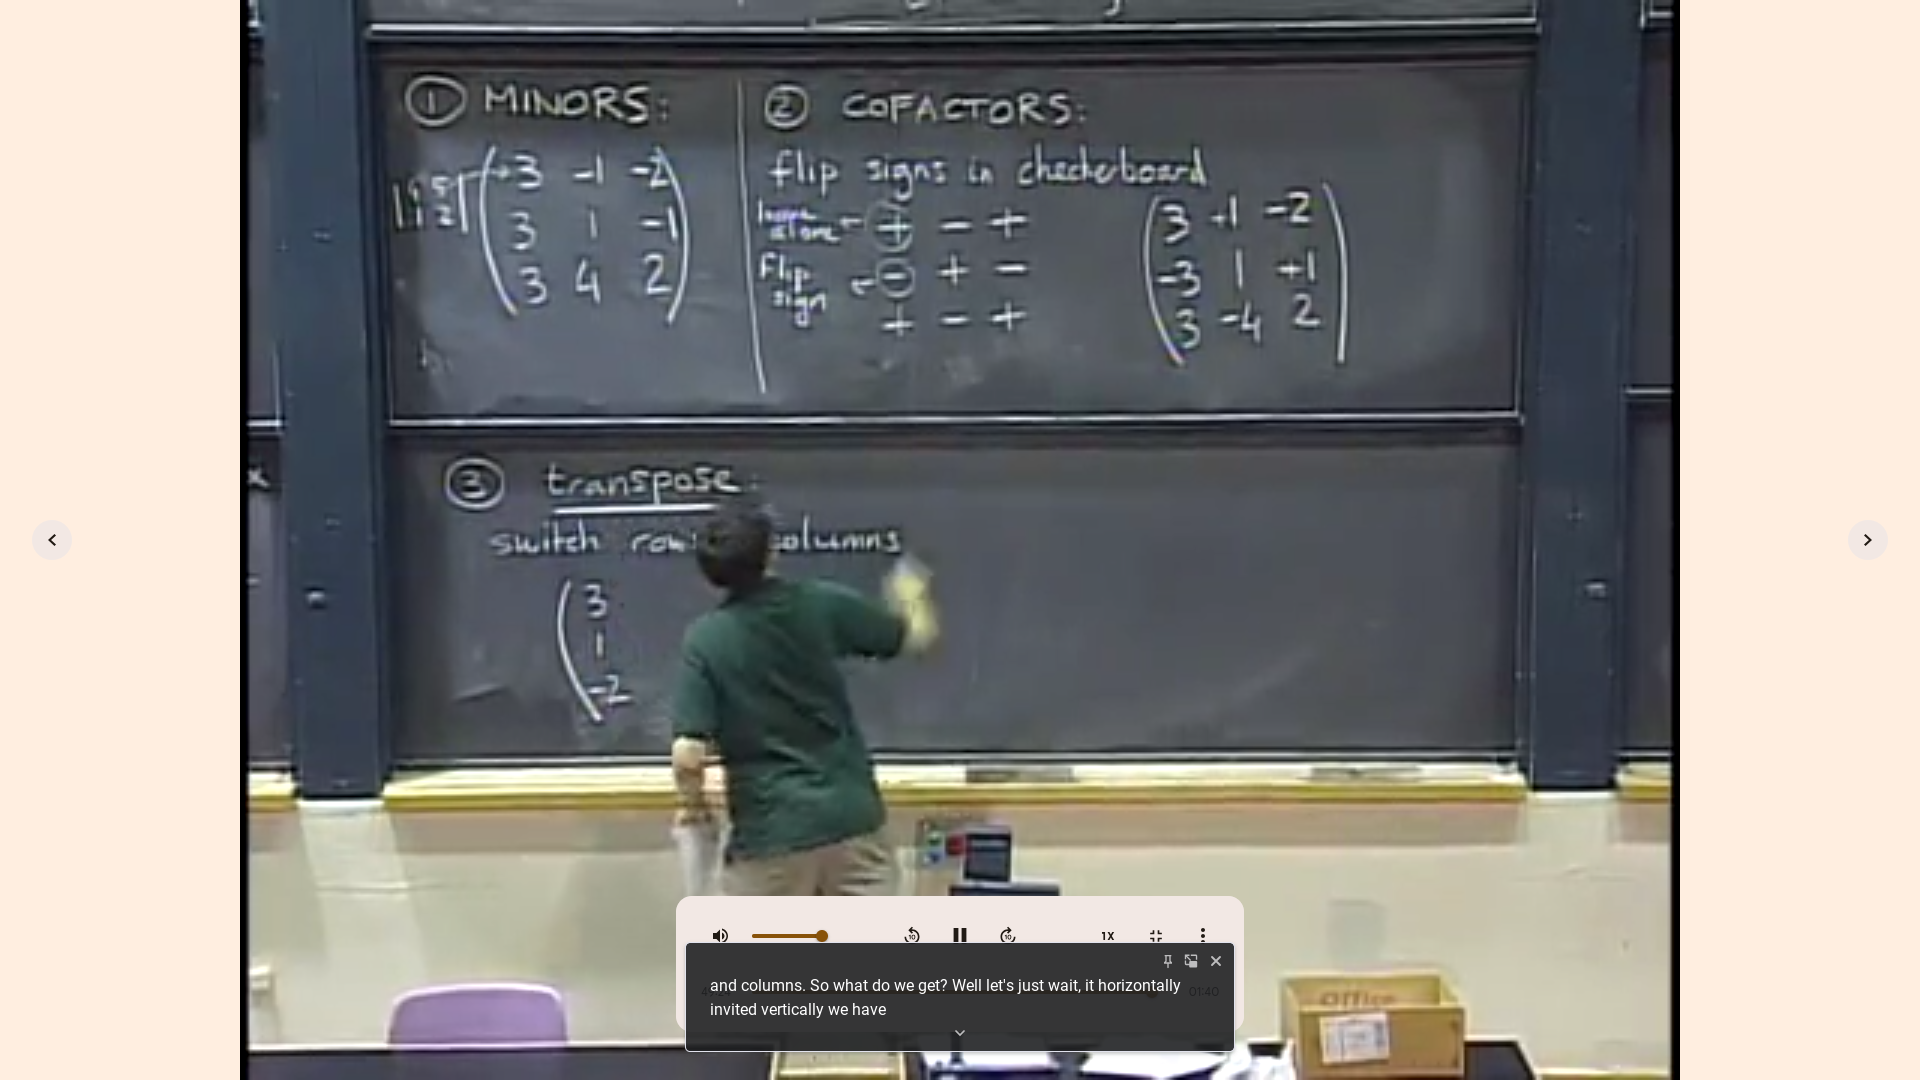 ① MINORS:
3 -1 -2
3 1 -1
3 4 2
② COFACTORS:
flip signs in checkerboard
leave alone ← + - +
flip sign ← - + -
+ - +
3 +1 -2
-3 1 +1
3 -4 2
③ transpose:
switch rows columns
3
1
-2
1X
and columns. So what do we get? Well let's just wait, it horizontally
invited vertically we have
01:40
Office